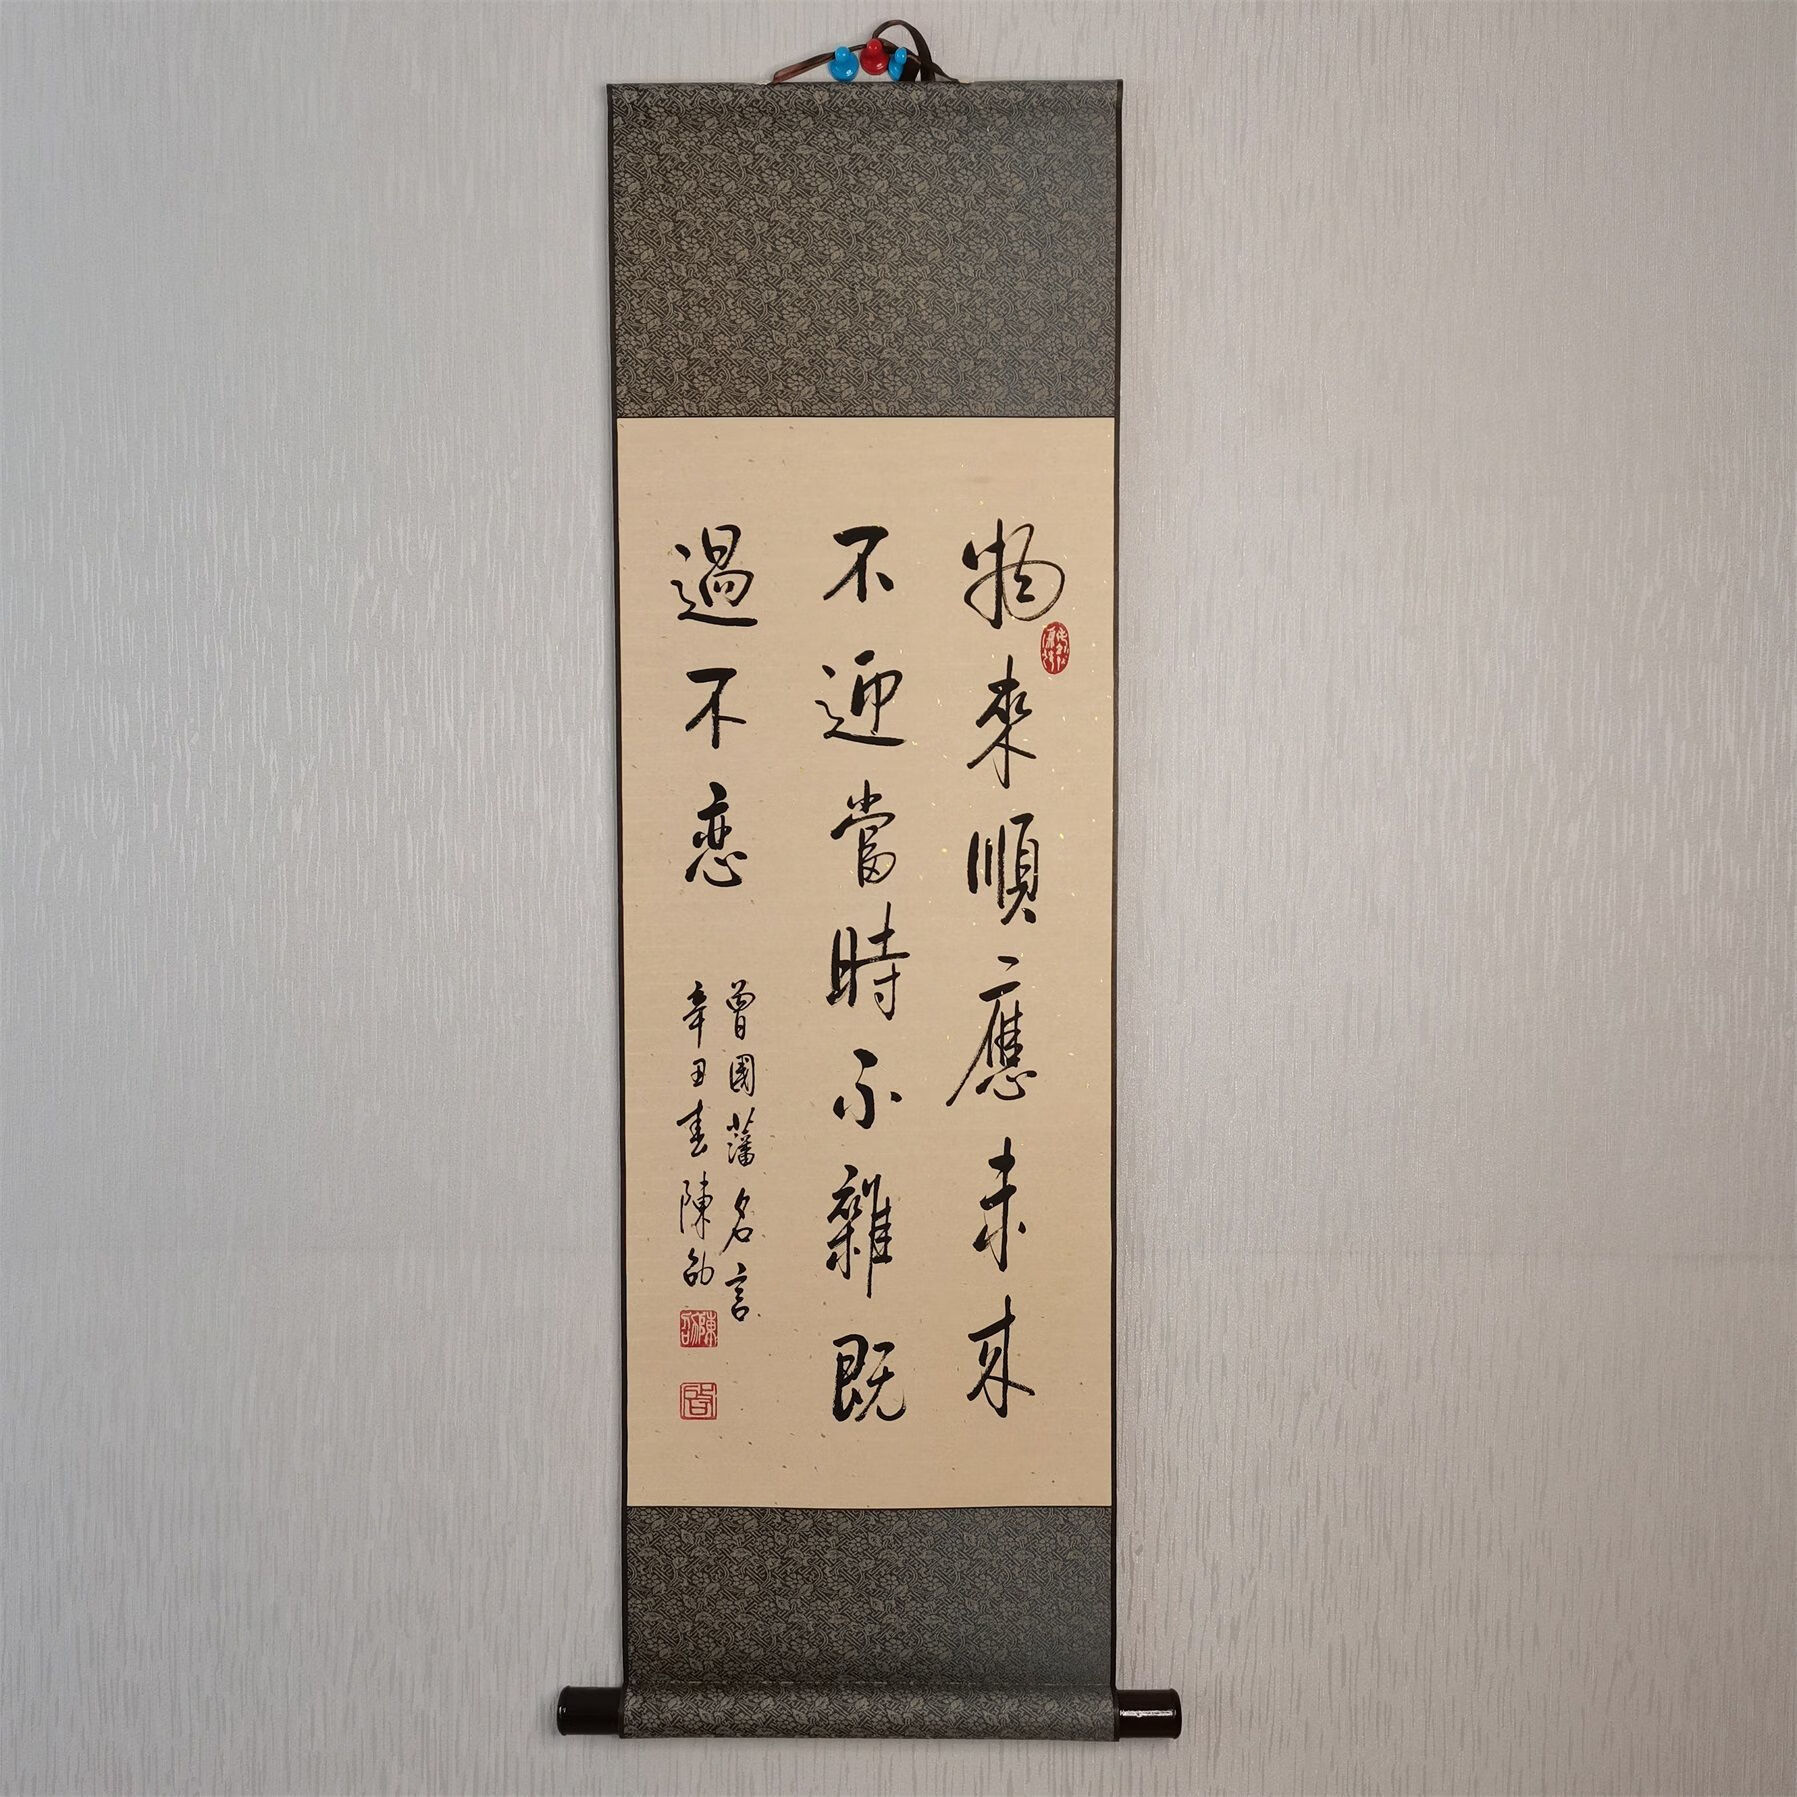 物來順應未來
不迎當時不雜既
過不恋
曾國藩名言
辛丑春陳劭